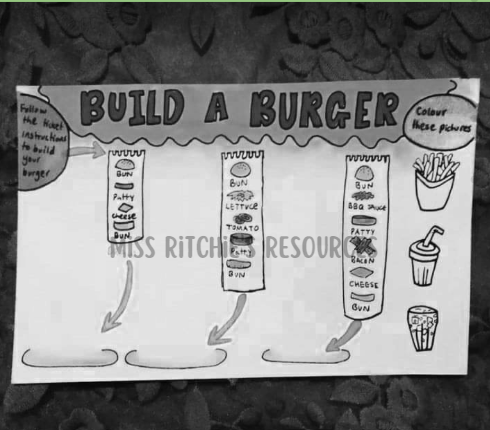 BUILD A BURGER
Follow
the ticket
instructions
to build
your
burger
Colour
these pictures
BUN
Patty
cheese
BUN
BUN
LETTUCE
TOMATO
Patty
BUN
BUN
BBQ sauce
PATTY
BACON
CHEESE
BUN
MISS RITCHIE'S RESOURCES